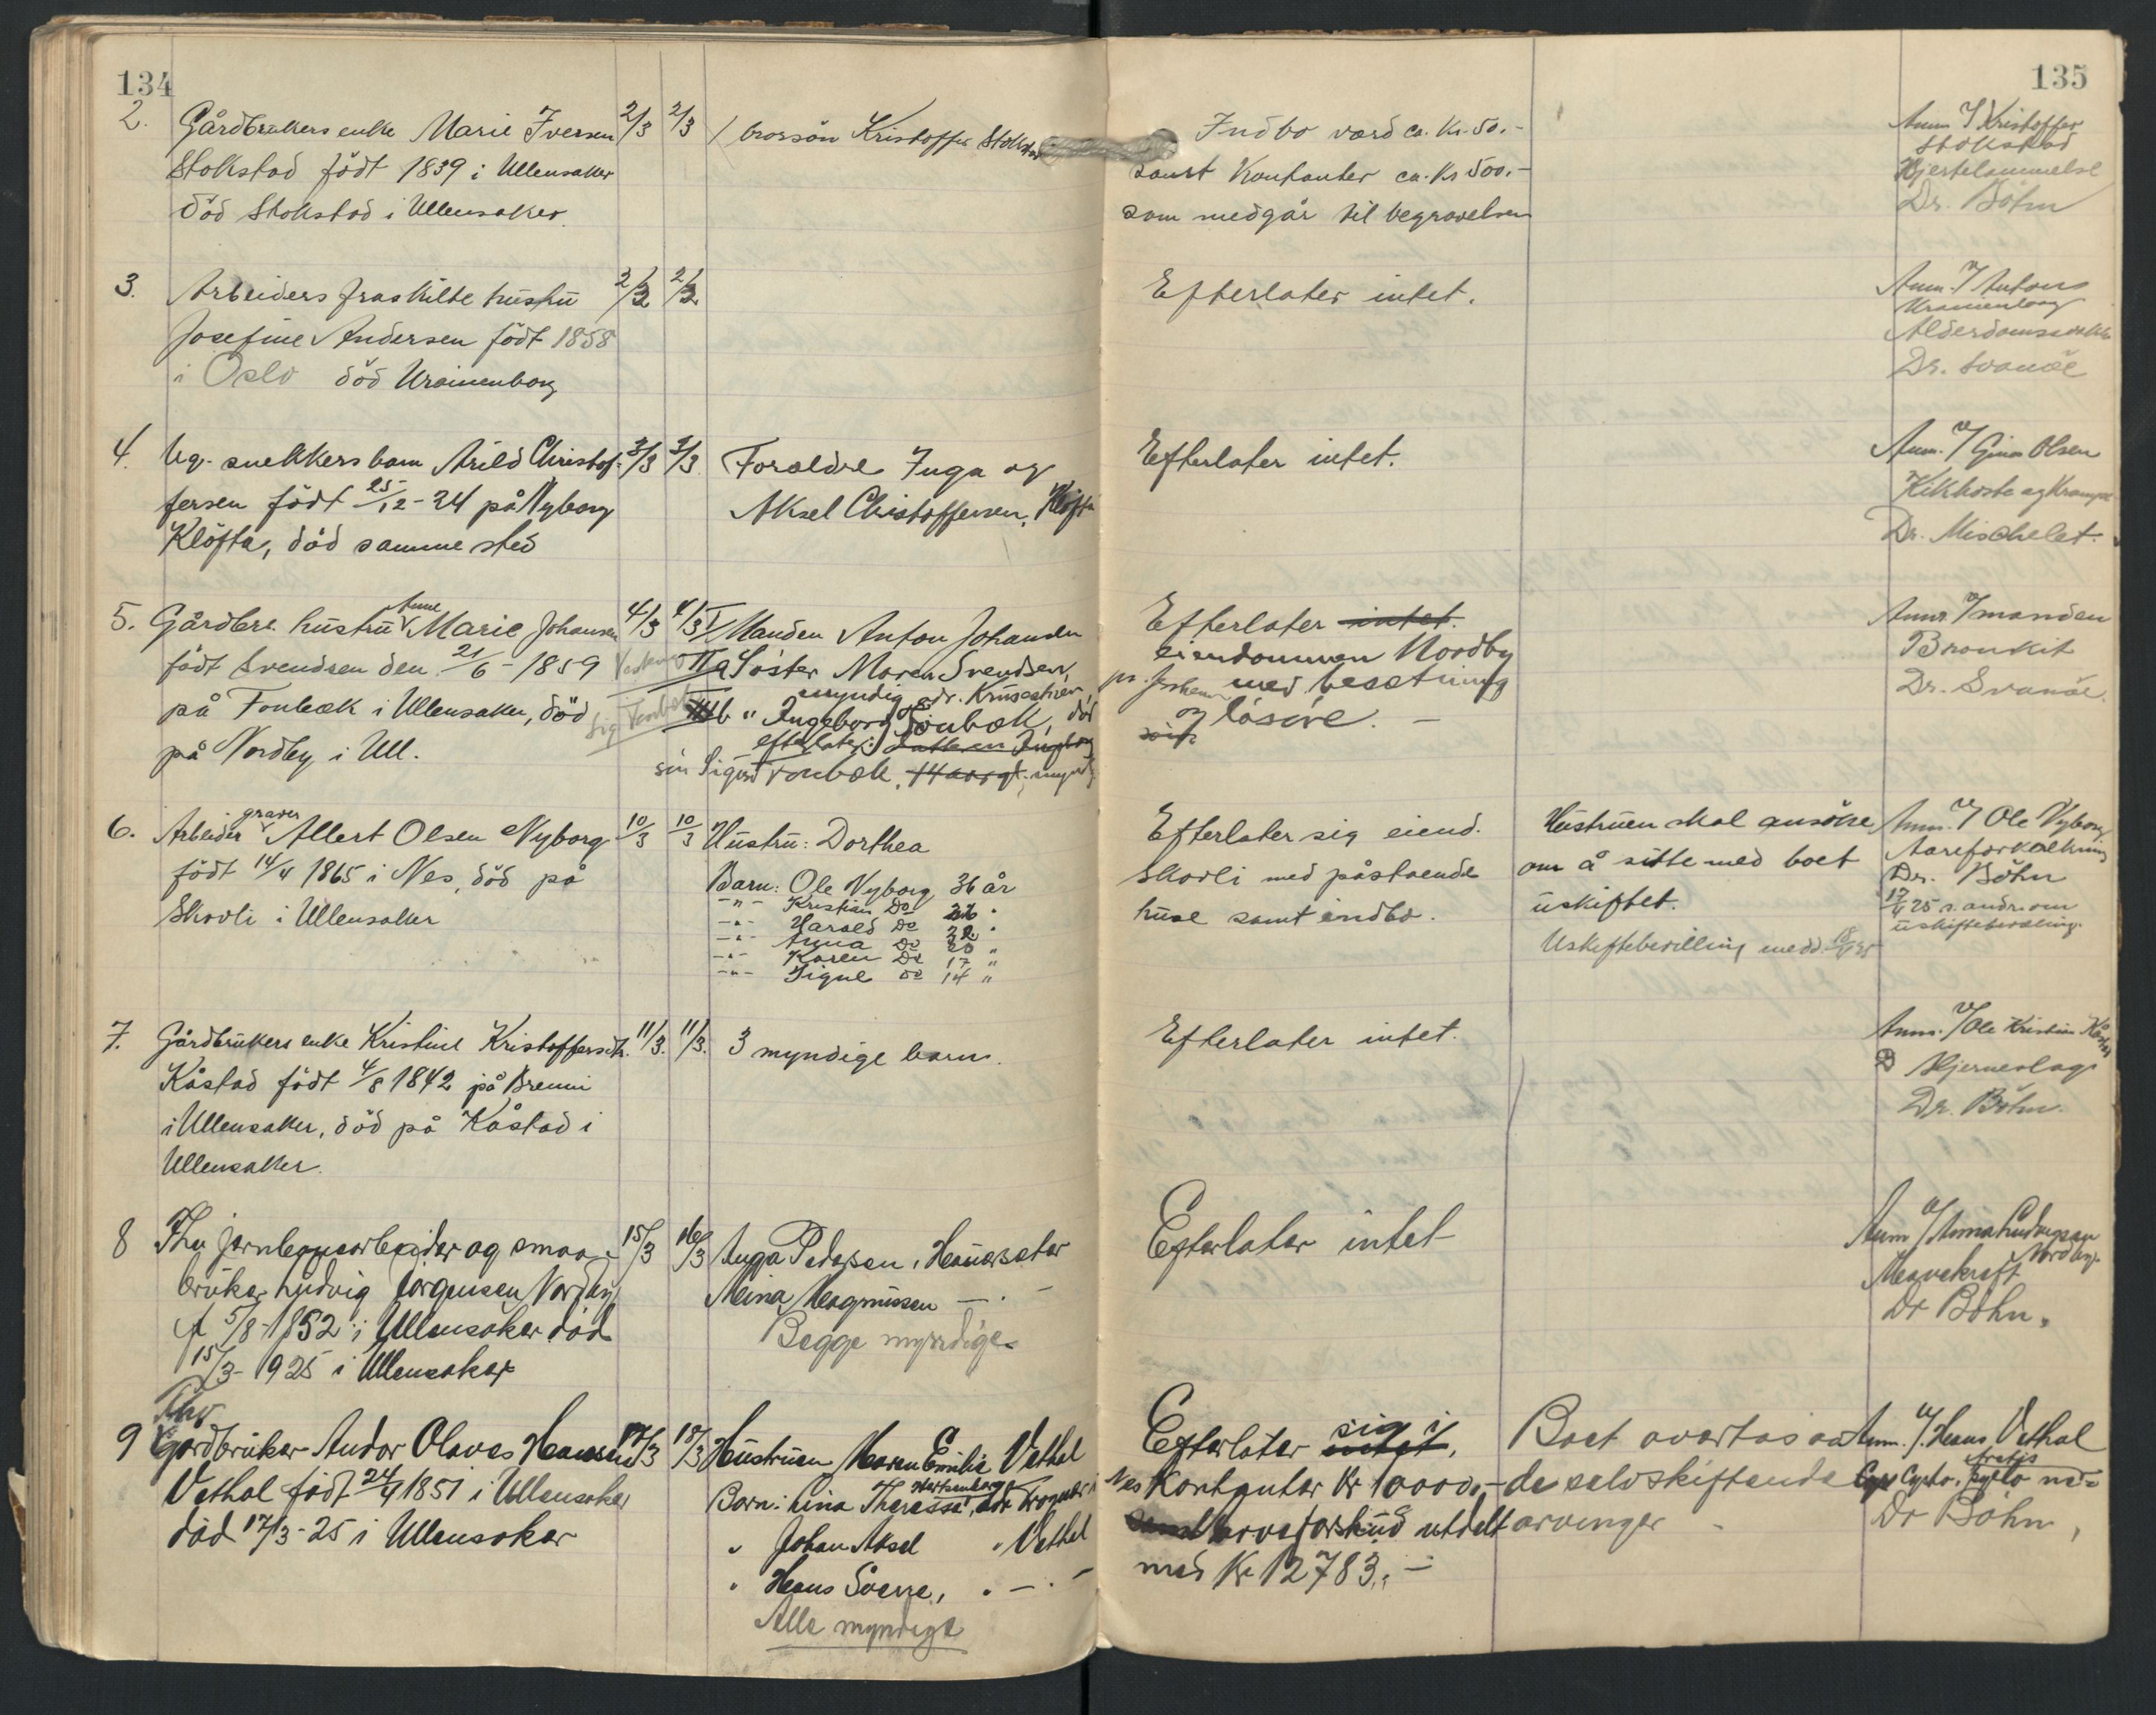 134
135
2. Gårdbrukers enke Marie Iversen 2/3 2/3 1 brorsön Kristoffer Stokstad
Stokstad födt 1839 i Ullensaker
död Stokstad i Ullensaker.
Indbo værd ca. Kr. 50.-
samt Kontanter ca. Kr 500.-
som medgår til begravelsen
Anm. v/ Kristoffer
Stokstad
Hjertelammelse
Dr. Böhn
3. Arbeiders fraskilte hustru 2/3 2/3
Josefine Andersen födt 1858
i Oslo död Uranienborg
Efterlater intet.
Anm. v/ Antons
Uranienborg
Alderdomssvakh.
Dr. Svanöe
4. Ug. snekkers barn Arild Christof- 3/3 3/3
fersen födt 25/12-24 på Nyborg
Klöfta, död samme sted
Foreldre Inga og
Aksel Christoffersen, Klöfta
Efterlater intet.
Anm. v/ Gina Olsen
Kikhoste og Krampe
Dr. Mischelet.
5. Gårdbr. hustru Anne Marie Johansen 4/3 4/3
födt Svendsen den 21/6-1859
på Fonbæk i Ullensaker, död
på Nordby i Ull.
I Manden Anton Johansen
II a Söster Maren Svendsen,
myndig adr. Krusæther
b " Ingeborg Fonbæk, död
efterlater: datteren Ingeborg
sön Sigurd Fonbæk, 14 år gl. myndig
Efterlater intet.
eiendommen Nordby
pr. Jessheim med besetning
og lösöre. -
Anm. v/ manden
Bronkit
Dr. Svanöe
6. Arbeider graver Albert Olsen Nyborg 10/3 10/3
födt 14/4 1865 i Nes, död på
Skovli i Ullensaker
Hustru: Dorthea
Barn: Ole Nyborg 36 år
-"- Kristian Do 26 "
-"- Harald Do 22 "
-"- Anna Do 20 "
-"- Karen Do 17 "
-"- Signe do 14 "
Efterlater sig eiend.
Skovli med påstaende
huse samt indbo.
Hustruen skal ansöke
om å sitte med boet
uskiftet.
Uskiftebevilling medd. 18/4 25
Anm. v/ Ole Nyborg
Aareforkalkning
Dr. Böhn
17/4 25 s. andr. om
uskiftebevilling.
7. Gårdbrukers enke Kristine Kristoffersdtr. 11/3. 11/3.
Kåstad födt 4/8 1842 på Brenni
i Ullensaker, död på Kåstad i
Ullensaker.
3 myndige barn.
Efterlater intet.
Anm. v/ Ole Kristian Kåstad
Hjerneslag
Dr. Böhn.
8 Fhv jernbanearbeider og smaa- 15/3 16/3
bruker Ludvig Jörgensen Nordby
f 5/8-1852 i Ullensaker död
15/3-1925 i Ullensaker
Inga Pedersen, Hauerseter
Mina Magnussen - " -
Begge myndige
Efterlater intet
Anm v/ Anna Ludvigsen
Nordby.
Mavekreft
Dr Böhn.
9 Fhv Gårdbruker Andor Olaves Hansen 17/3 18/3
Vethal födt 24/4 1851 i Ullensaker
död 17/3-25 i Ullensaker
Hustruen Maren Emilie Vethal
Barn: Lina Theressa
" Johan Aksel " Vethal
" Hans Sverre, " - " -
Alle myndige
Efterlater intet, sig i
Kontanter Kr 10000,-
arveforskud utdelt
med Kr 12783,-
Boet overtas av
de selvskiftende
arvinger -
Anm. v/. Hans Vethal
Dr Böhn,